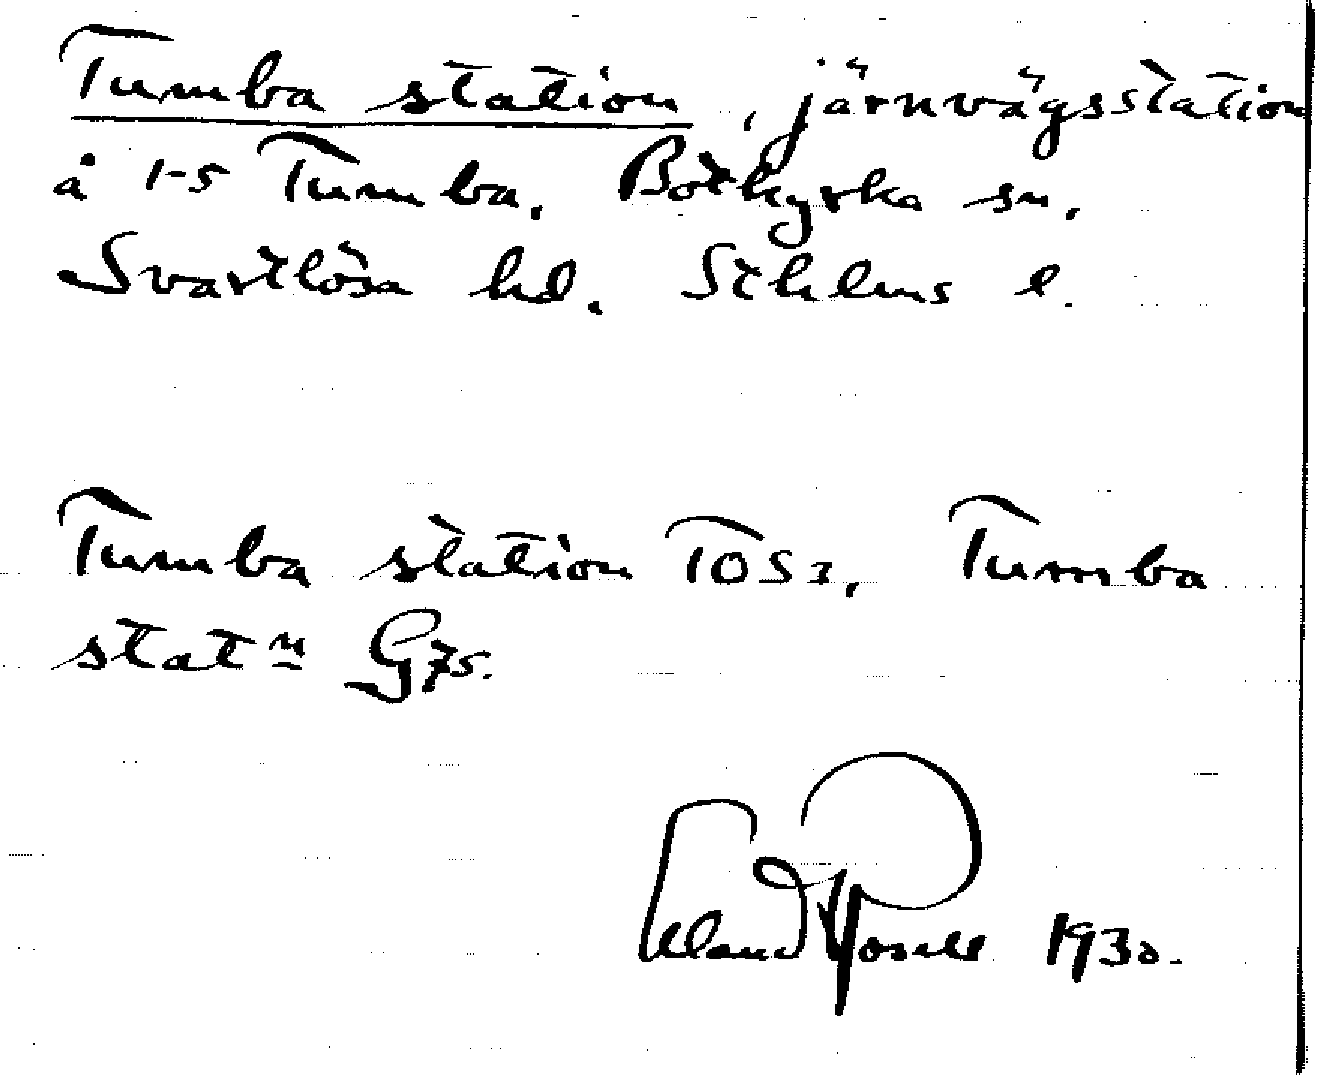 Tumba station, järnvägsstation
å 1-5 Tumba. Botkyrka sn.
Svartlösa hd. Sthlms l.
Tumba station TOS1, Tumba
stat<u>n</u> G75.
Erland Rosell 1930.